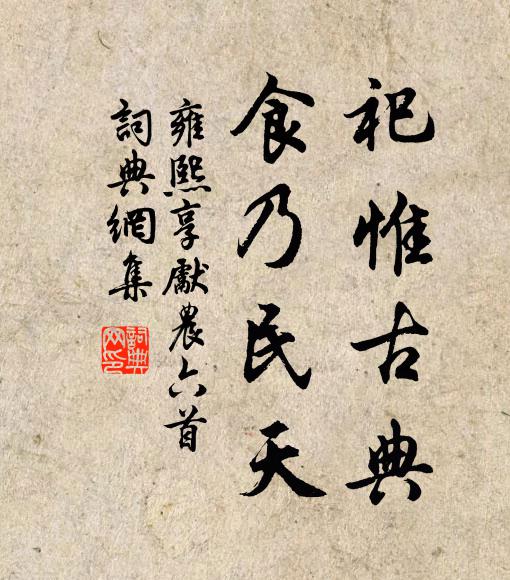 祀惟古典
食乃民天
雍熙享獻農六首
詞典網集
詞典
网印